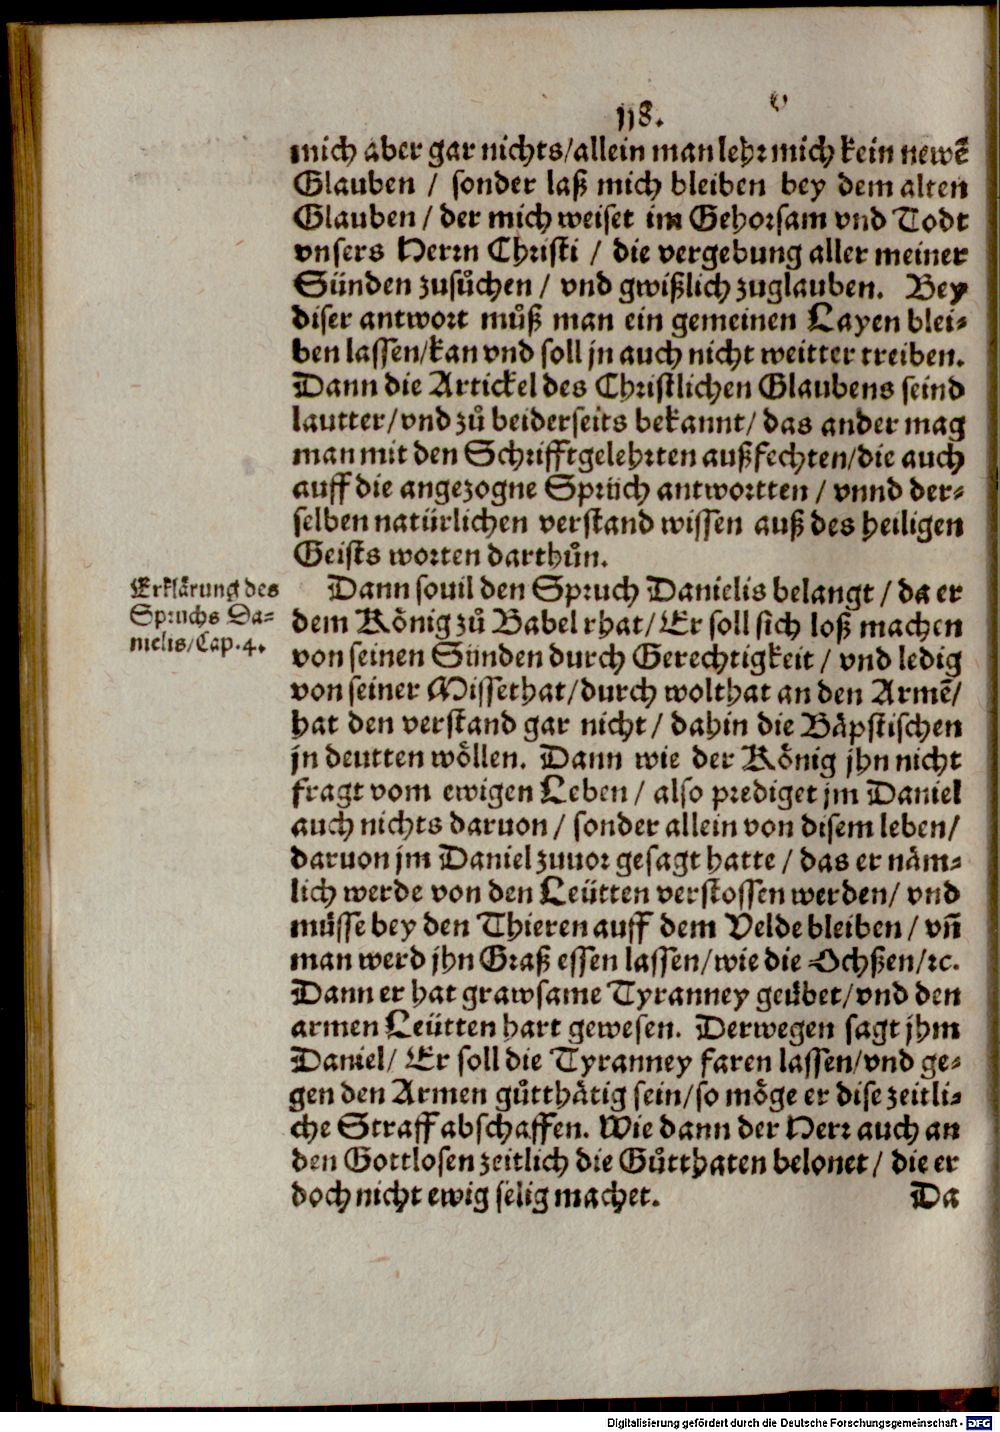 118.
mich aber gar nichts/allein man lehr mich kein newẽ
Glauben / sonder laß mich bleiben bey dem alten
Glauben / der mich weiset im Gehorsam vnd Todt
vnsers Herrn Christi / die vergebung aller meiner
Sünden zusůchen / vnd gwißlich zuglauben. Bey
diser antwort můß man ein gemeinen Layen blei-
ben lassen/kan vnd soll jn auch nicht weitter treiben.
Dann die Artickel des Christlichen Glaubens seind
lautter/vnd zů beiderseits bekannt/ das ander mag
man mit den Schrifftgelehrten außfechten/die auch
auff die angezogne Sprüch antwortten / vnnd der-
selben natürlichen verstand wissen auß des heiligen
Geists worten darthůn.
Erklärung des
Spruchs Da-
nielis/Cap.4.
Dann souil den Spruch Danielis belangt / da er
dem König zů Babel rhat/ Er soll sich loß machen
von seinen Sünden durch Gerechtigkeit / vnd ledig
von seiner Missethat/durch wolthat an den Armẽ/
hat den verstand gar nicht / dahin die Bäpstischen
jn deutten wöllen. Dann wie der König jhn nicht
fragt vom ewigen Leben / also prediget jm Daniel
auch nichts daruon / sonder allein von disem leben/
daruon jm Daniel zuuor gesagt hatte / das er näm-
lich werde von den Leütten verstossen werden/ vnd
müsse bey den Thieren auff dem Velde bleiben / vñ
man werd jhn Graß essen lassen/wie die Ochßen/ꝛc.
Dann er hat grawsame Tyranney geübet/vnd den
armen Leütten hart gewesen. Derwegen sagt jhm
Daniel/ Er soll die Tyranney faren lassen/vnd ge-
gen den Armen gůtthätig sein/so möge er dise zeitli-
che Straff abschaffen. Wie dann der Herr auch an
den Gottlosen zeitlich die Gůtthaten belonet / die er
doch nicht ewig selig machet. Da
Digitalisierung gefördert durch die Deutsche Forschungsgemeinschaft - DFG